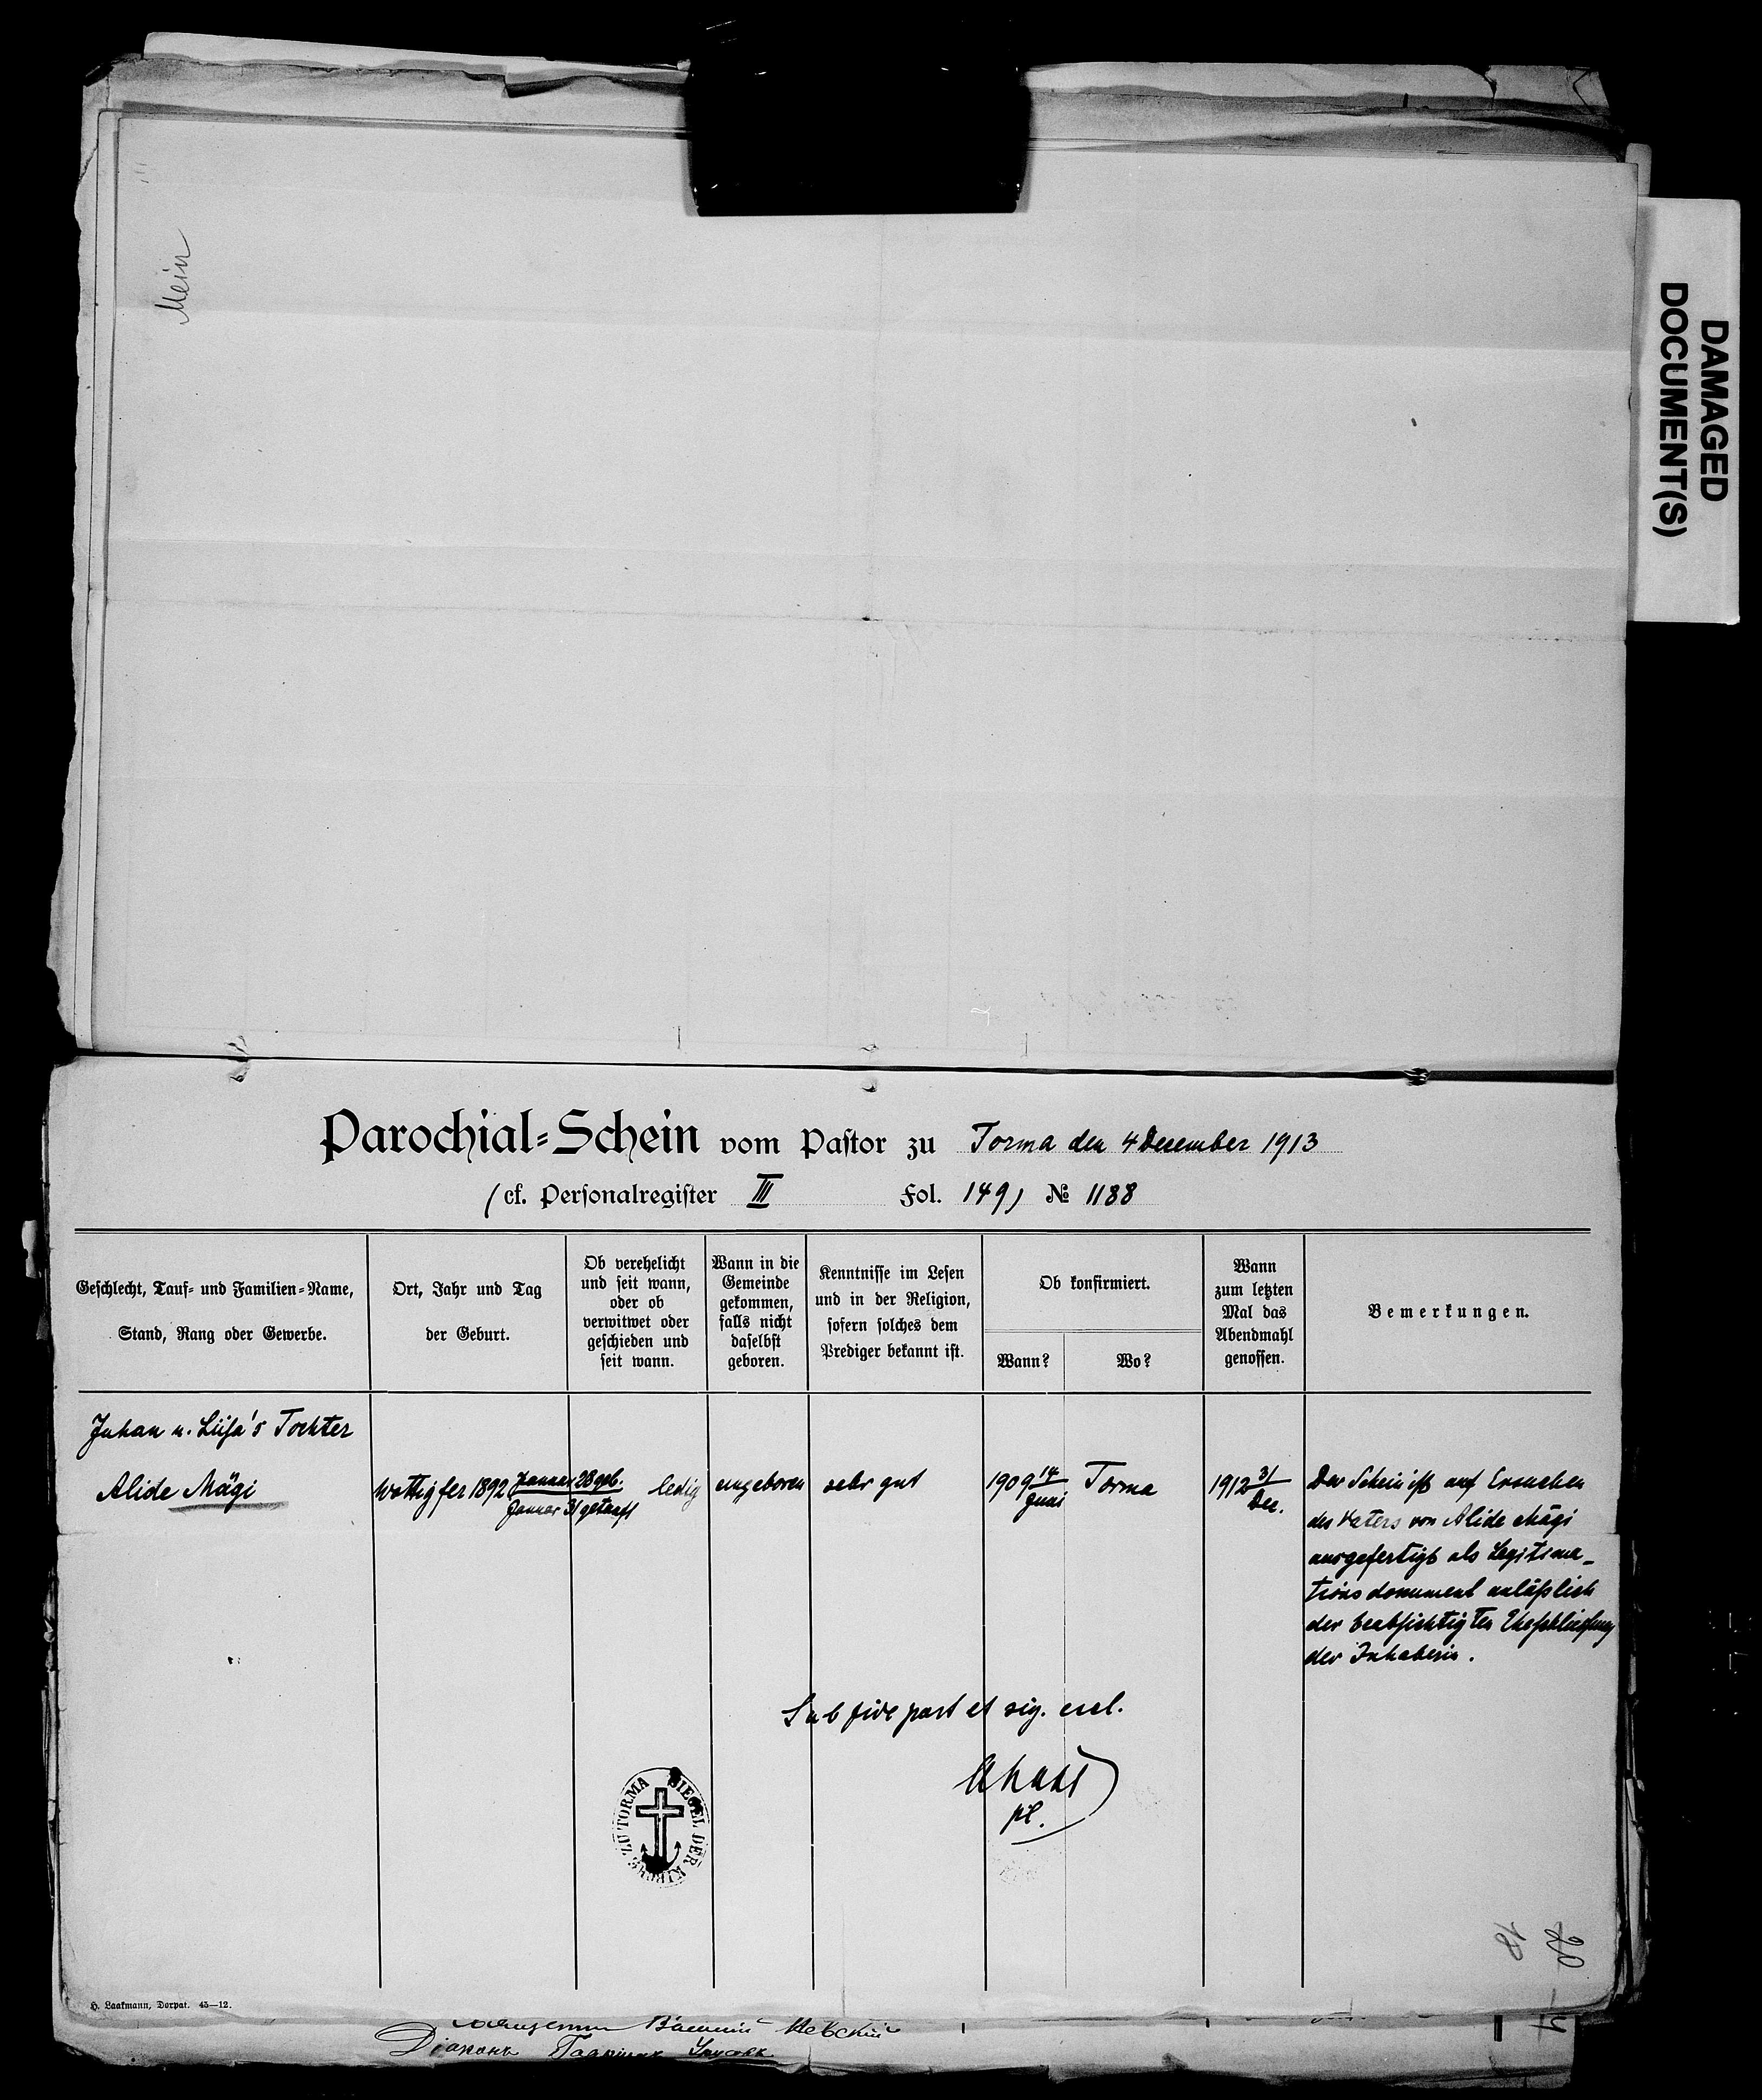 Mein
DAMAGED
DOCUMENT(S)
Parochial-Schein vom Pastor zu Torma den 4 December 1913
(cf. Personalregister III Fol. 149) № 1188
Geschlecht, Tauf- und Familien-Name,
Stand, Rang oder Gewerbe.
Ort, Jahr und Tag
der Geburt.
Ob verehelicht
und seit wann,
oder ob
verwitwet oder
geschieden und
seit wann.
Wann in die
Gemeinde
gekommen,
falls nicht
daselbst
geboren.
Kenntnisse im Lesen
und in der Religion,
sofern solches dem
Prediger bekannt ist.
Ob konfirmiert.
Wann?
Wo?
Wann
zum letzten
Mal das
Abendmahl
genossen.
Bemerkungen.
Juhan u. Liisa's Tochter
Alide Mägi
Wottigfer 1892 Januar 28 geb.
Januar 31 getauft
ledig
eingeboren
sehr gut
1909 14
Juni
Torma
1912 31
Dec.
Der Schein ist auf Ersuchen
des Vaters von Alide Mägi
ausgefertigt als Legitima-
tionsdocument anläßlich
der beabsichtigten Eheschliessung
der Inhaberin.
Sub fide past et sig. eccl.
pl.
SIEGEL DER KIRCHE ZU TORMA
18
20
H. Laakmann, Dorpat. 45—12.
Василий Невский
Діаконъ